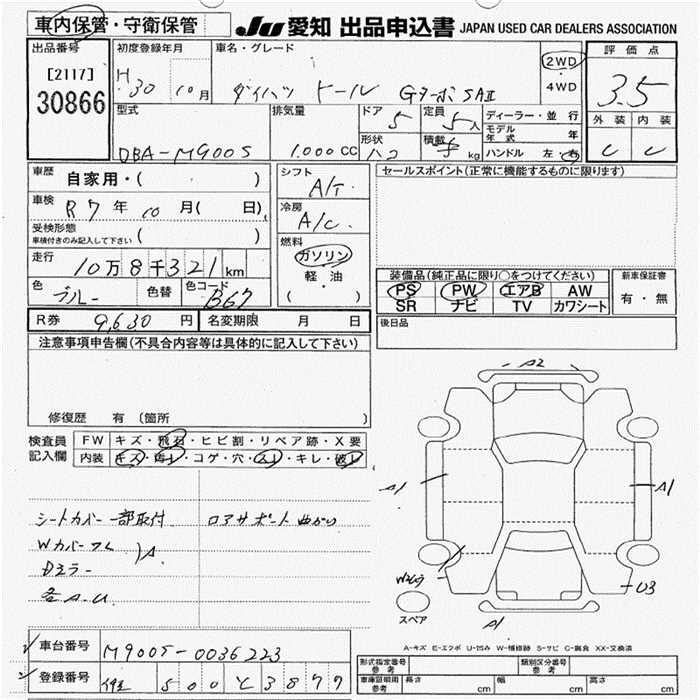 車内保管・守衛保管 JU 愛知 出品申込書 JAPAN USED CAR DEALERS ASSOCIATION
出品番号 [2117] 30866
初度登録年月 H 30 10月
車名・グレード ダイハツ トール Gターボ SAⅡ
2WD ・ 4WD
評価点 3.5
外装 C 内装 C
型式 DBA-M900S
排気量 1,000 CC
ドア 5 定員 5人
形状 ハコ 積載 kg
ディーラー・並行
モデル年式 年
ハンドル 左・右
車歴 自家用・( )
車検 R7年10月( 日)
受検形態 車検付きのみ記入して下さい ( )
走行 10万8千321km
色 ブルー 色替 色コード B67
シフト A/T
冷房 A/C
燃料 ガソリン・軽・油 ( )
セールスポイント(正常に機能するものに限ります)
装備品(純正品に限り○をつけてください)
PS PW エアB AW
SR ナビ TV カワシート
新車保証書 有・無
R券 9,630円 名変期限 月 日
後日品
注意事項申告欄(不具合内容等は具体的に記入して下さい)
修復歴 有(箇所 )
検査員記入欄 FW キズ・飛石・ヒビ割・リペア跡・X要
内装 キズ・汚レ・コゲ・穴・スレ・キレ・破レ
シートカバー一部取付 ロアサポート曲がり
Wカバーワレ
Dミラー
各A.U
A
A2
A1
A1
U3
A1
スペア
A-キズ E-エクボ U-凹み W-補修跡 S-サビ C-腐食 XX-交換済
車台番号 M900S-0036223
登録番号 500 と 3877
形式指定番号 参考 類別区分番号 参考
車庫証明用 参考 長さ cm 幅 cm 高さ cm